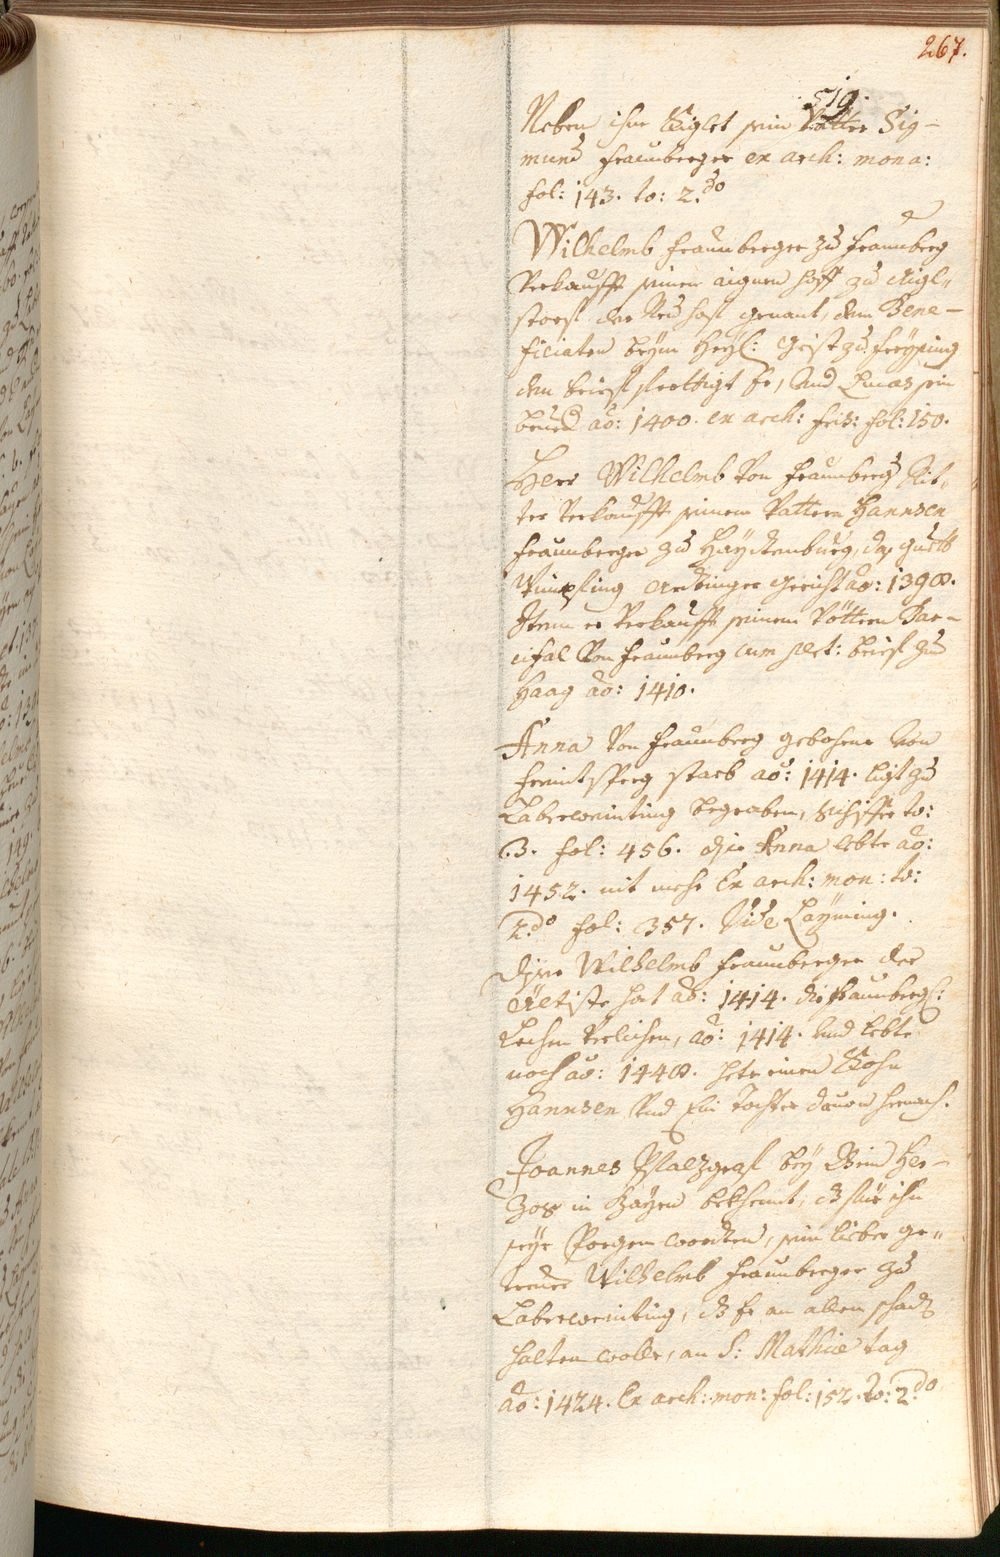 267.
519.
Neben ihm Siglet sein Vatter Sig-
mund Fraunberger ex arch: mona:
fol: 143. to: 2.do
Wilhelmb Fraunberger zu Fraunberg
Verkaufft seinen aignen hoff zu
storf der Neu hof genant, dem Bene-
ficiaten beym Heyl: Geist zu Freysing
den brief förttigt Er, und Lucas sein
brued ao: 1400. ex arch: fris: fol: 150.
Herr Wilhelmb Von Fraunberg Rit-
ter Verkaufft seinem Vattern Hannsen
Fraunberger zu Hayttenburg, das guett
Wimpfling Ardinger gericht ao: 1398.
Item er Verkaufft seinem Vöttern Par-
cifal Von Fraunberg brief zu
Haag ao: 1410.
Anna Von Fraunberg gebohrne Von
Freintsperg starb ao: 1414. ligt zu
Laberweinting begraben, to:
3. fol: 456. dise Anna lebte ao:
1452. nit mehr Ex arch: mon: to:
2.do fol: 357. Vide Layming.
Diser Wilhelmb Fraunberger der
Eltiste hat ao: 1414. die Fraunberg:
Lechen verlichen, ao: 1414. und lebte
noch ao: 1448. hete einen Sohn
Hannsen Vnd Ein Tochter dauon hernach.
Joannes Pfalzgraf bey Rein Her-
zog in Bayrn bekhennt, d für ihn
seye Porgen worden, sein lieber ge-
treuer Wilhelmb Fraunberger zu
Laberweinting, d Er an allen schad
halten wolle, an S: Mathiæ tag
ao: 1424. Ex arch: mon: fol: 152. to: 2.do